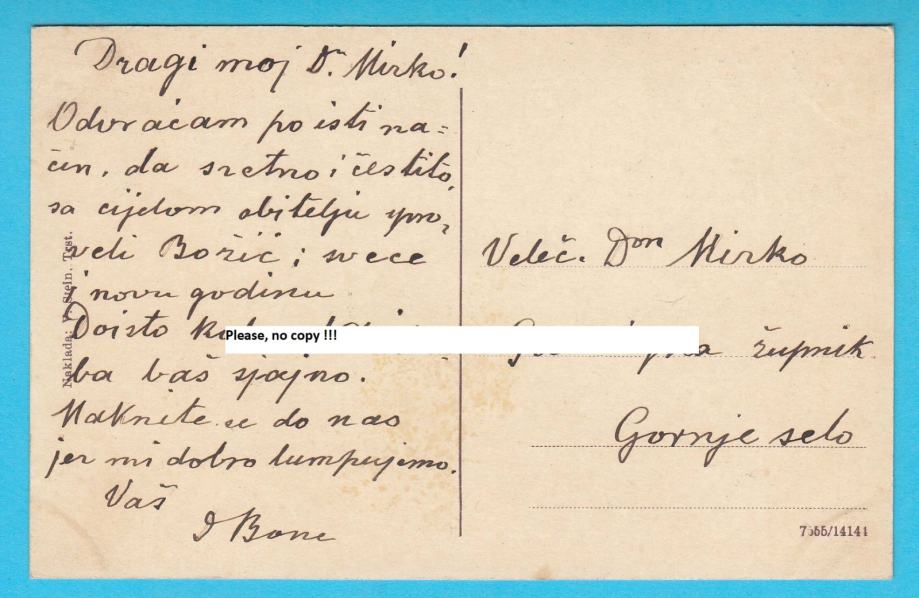 Dragi moj Dn. Mirko!
Odvraćam po isti na=
čin, da sretno i čestito,
sa cijelom obitelju ypro,
veli Božić i svece
i novu godinu
Doisto
ba baš sjajno.
Maknite se do nas
jer mi dobro lumpujemo.
Vaš
Bone
Naklada: V. Stein, Trst.
Please, no copy !!!
Veleč. Don Mirko
župnik
Gornje selo
7555/14144